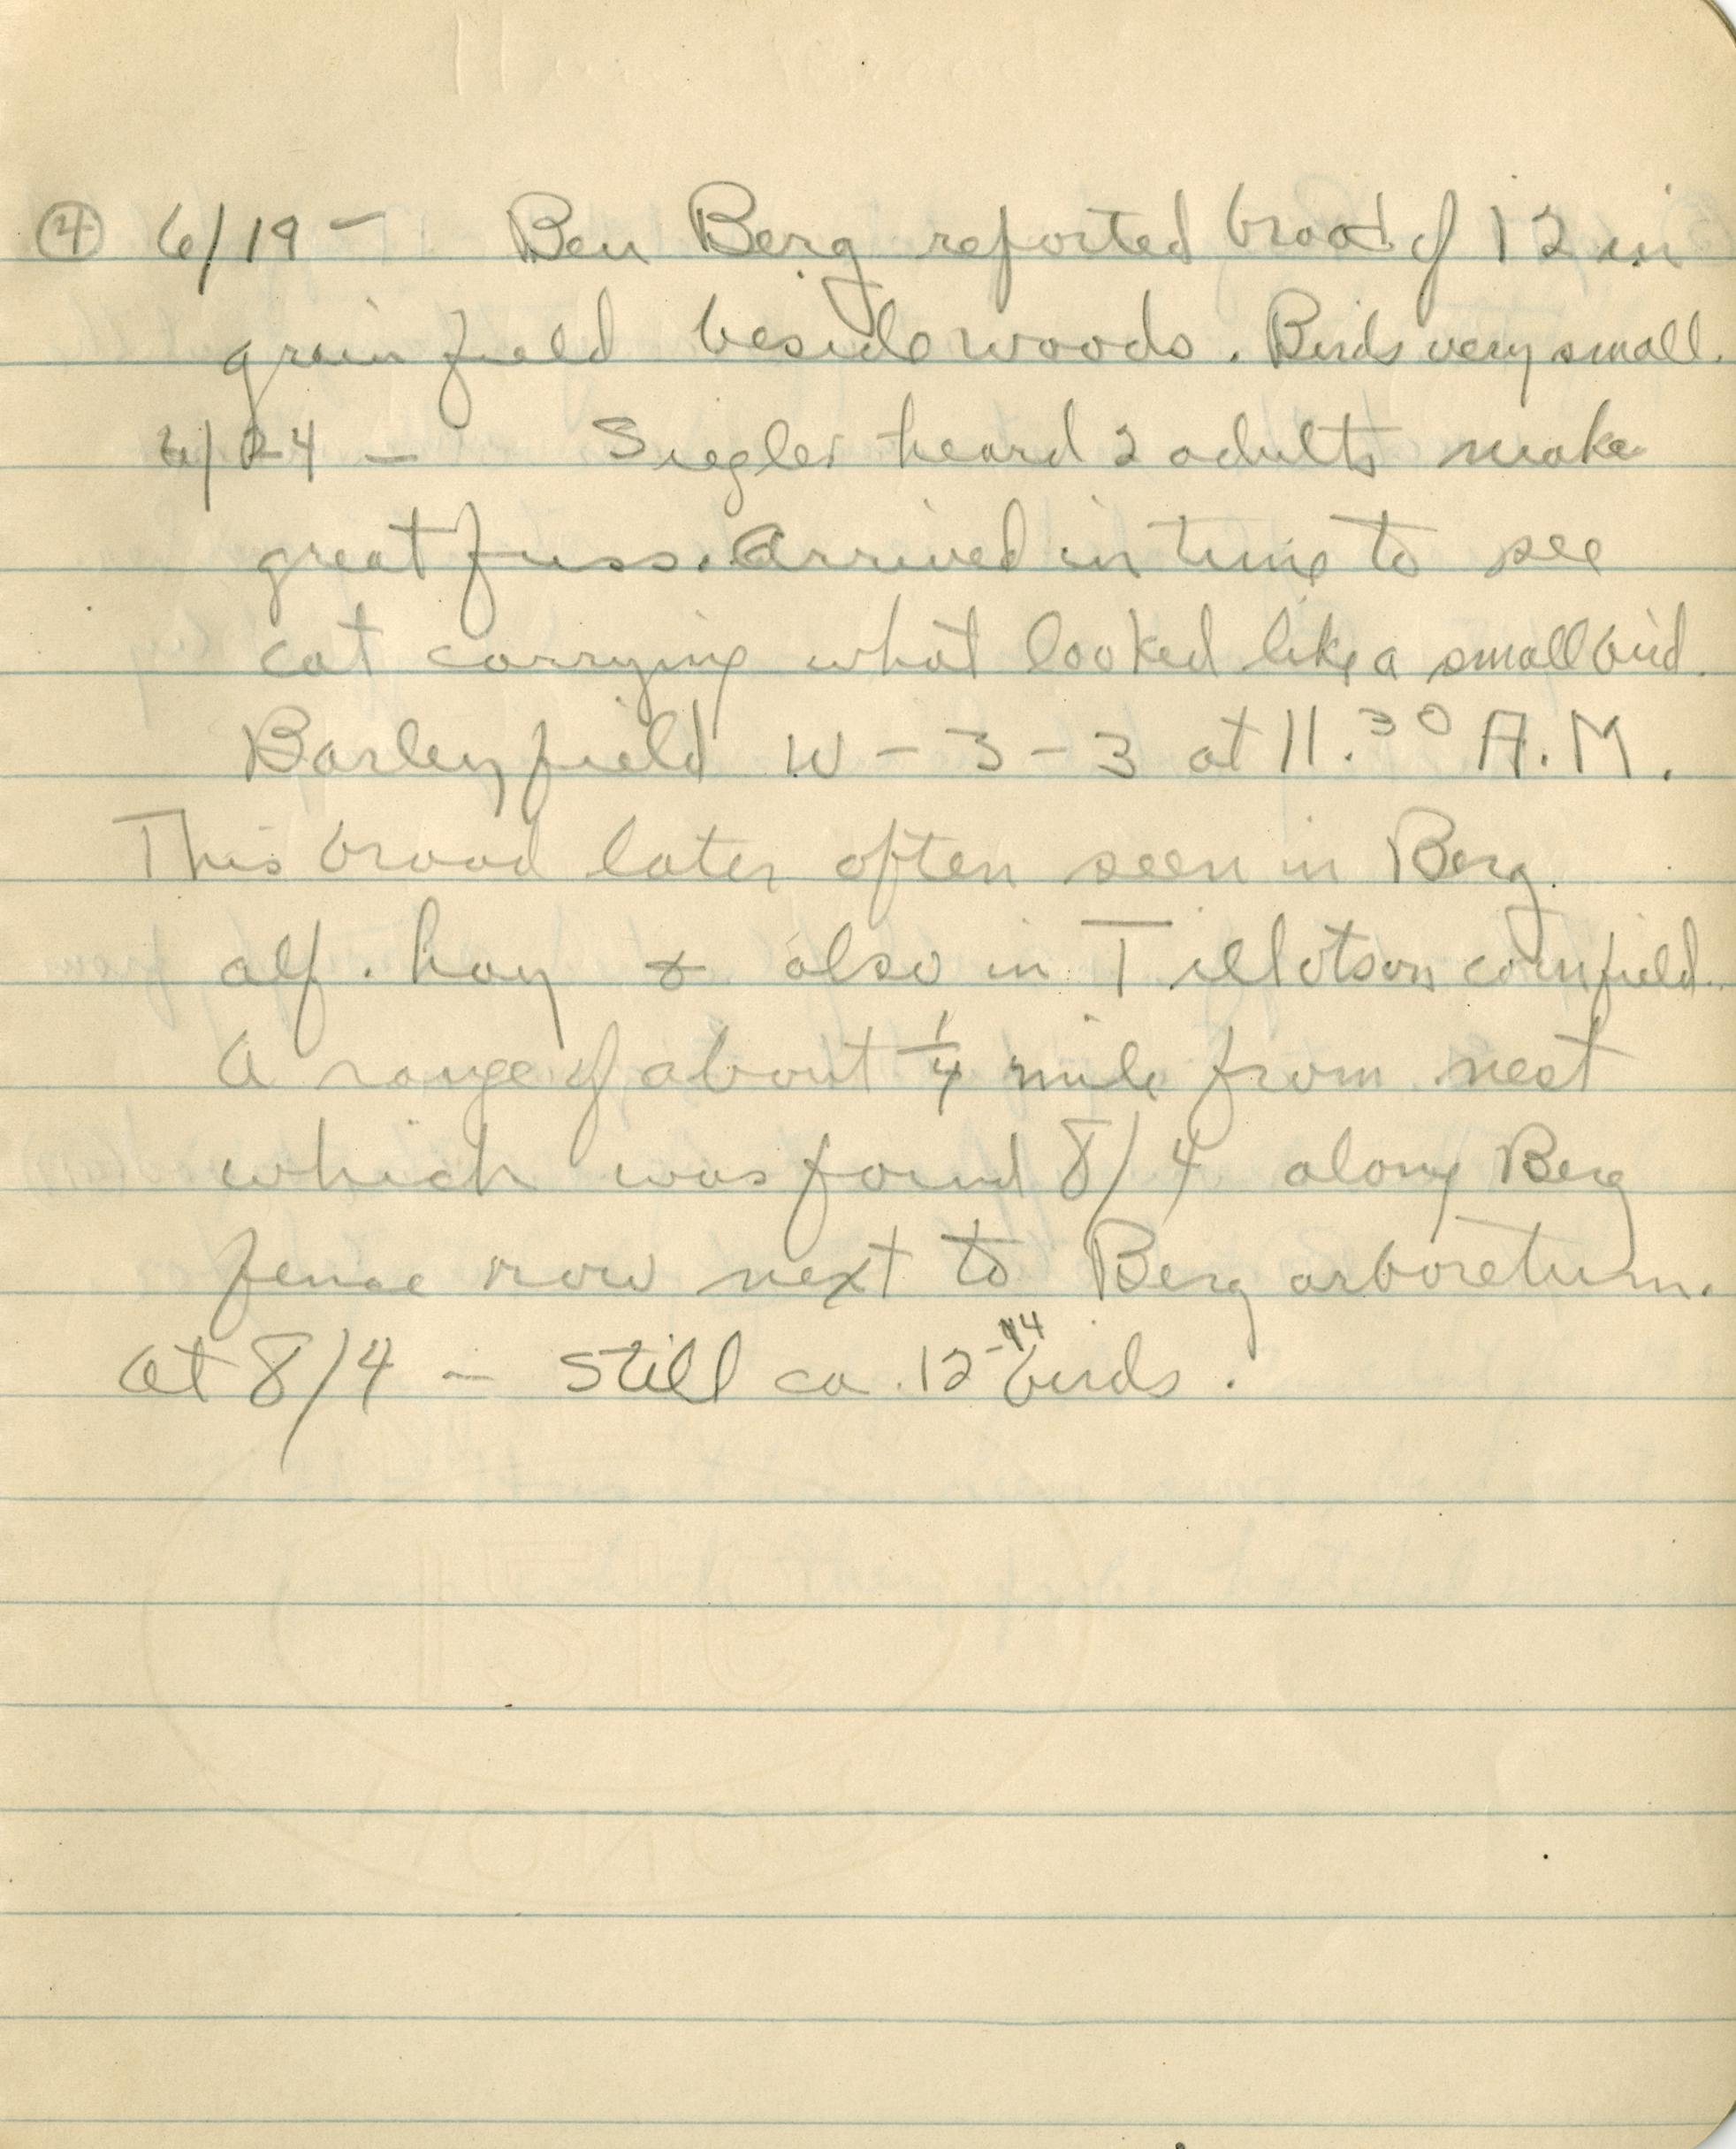 ④ 6/19 - Ben Berg reported brood of 12 in
grain field beside woods. Birds very small.
6/24 - Siegler heard 2 adults make
great fuss. Arrived in time to see
cat carrying what looked like a small bird.
Barleyfield W-3-3 at 11.30 A.M.
This brood later often seen in Berg
alf. hay & also in Tillotson cornfield.
A range of about 1/4 mile from nest
which was found 8/4 along Berg
fence row next to Berg arboretum.
At 8/4 - still ca. 12-14 birds.